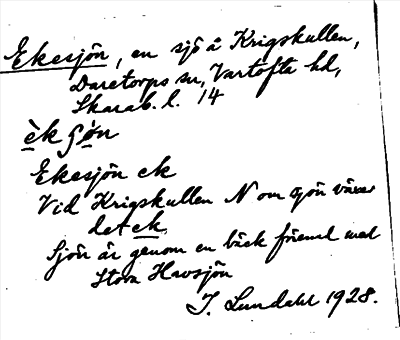 Ekesjön, en sjö å Krigskullen,
Daretorps sn, Vartofta hd,
Skarab. l. 14
èk ʂön
Ekesjön ek
Vid Krigskullen N om sjön växer
det ek.
Sjön är genom en bäck förend med
Stora Havsjön
J. Lundahl 1928.